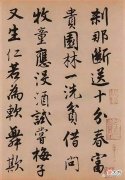 刹那断送十分春富
貴園林一洗貧借問
牧童應没酒試嘗梅子
又生仁若為軟舞欺